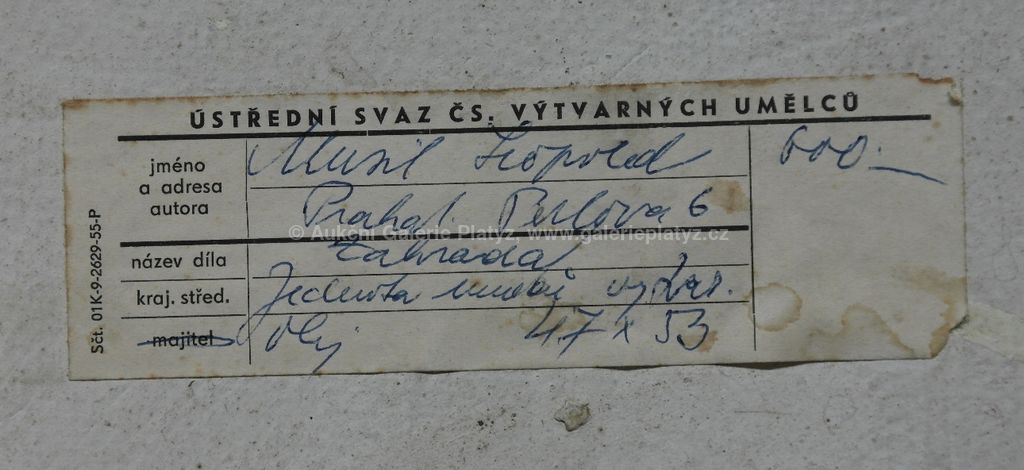 ÚSTŘEDNÍ SVAZ ČS. VÝTVARNÝCH UMĚLCŮ
jméno a adresa autora
Musil Leopold
600.—
Praha 1. Perlová 6
© Aukční Galerie Platýz, www.galerieplatyz.cz
název díla Zahrada
kraj. střed. Jednota uměl.
majitel olej 47 x 53
Sčt. 01K-9-2629-55-P